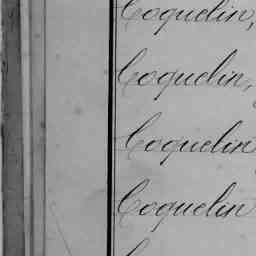 Coquelin,
Coquelin,
Coquelin
Coquelin